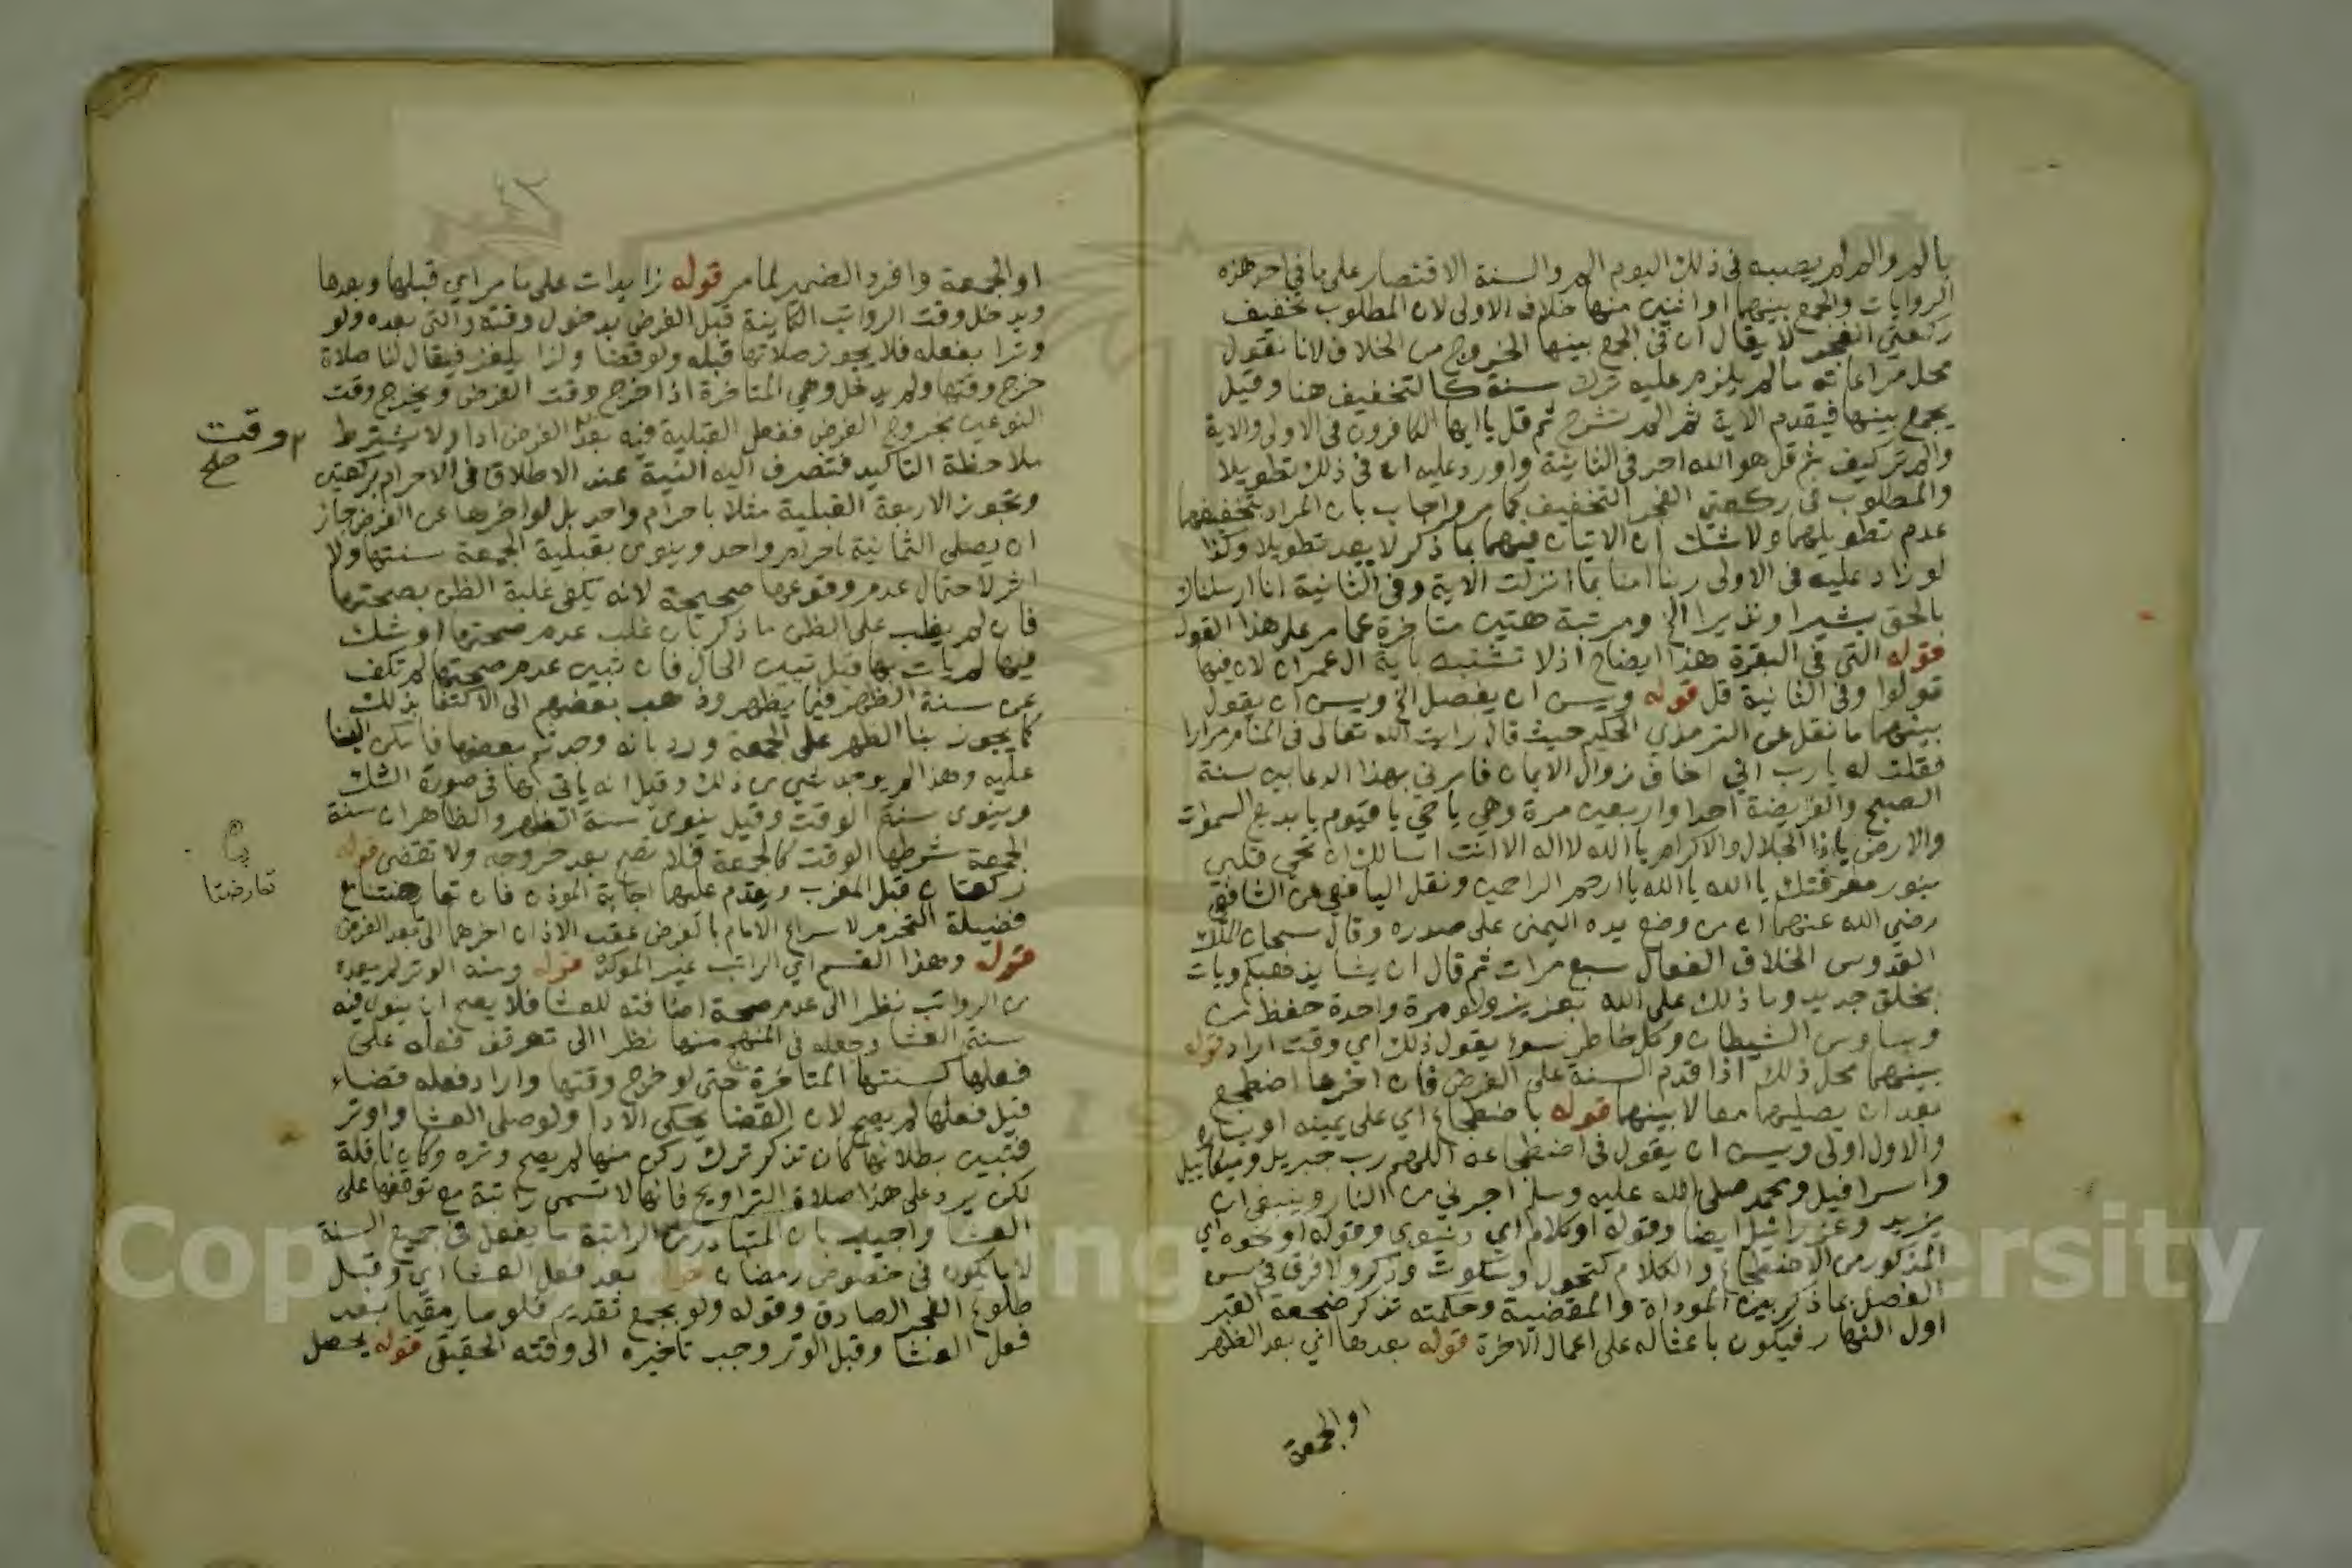 بالم والم لم يصبه في ذلك اليوم الم والسنة الاقتصار على ما في احد هذه
الروايات والجمع بينهما او اثنين منها خلاف الاولى لان المطلوب تخفيف
ركعتي الفجر لا يقال ان في الجمع بينها الخروج من الخلاف لانا نقول
محل مراعاته ما لم يلزم عليه ترك سنة كالتخفيف هنا وقيل
يجمع بينها فيقدم الاية ثم الم نشرح ثم قل يا ايها الكافرون في الاولى والاية
والم تر كيف ثم قل هو الله احد في الثانية واورد عليه ان في ذلك تطويلا
والمطلوب في ركعتي الفجر التخفيف كما مر واجاب بان المراد بتخفيفهما
عدم تطويلهما ولا شك ان الاتيان فيهما بما ذكر لا يعد تطويلا وكذا
لو زاد عليه في الاولى ربنا امنا بما انزلت الاية وفي الثانية انا ارسلناك
بالحق بشيرا ونذيرا الخ ومرتبة هتين متاخرة عما مر على هذا القول
قوله التي في البقرة هذا ايضاح اذ لا تشتبه باية ال عمران لان فيها
قولوا وفي الثانية قل قوله ويسن ان يفصل الخ ويسن ان يقول
بينهما ما نقل عن الترمذي الحكيم حيث قال رايت الله تعالى في المنام مرارا
فقلت له يا رب اني اخاف زوال الايمان فامرني بهذا الدعا بين سنة
الصبح والفريضة احدا واربعين مرة وهي يا حي يا قيوم يا بديع السموات
والارض يا ذا الجلال والاكرام يا الله لا اله الا انت اسالك ان تحيي قلبي
بنور معرفتك يا الله يا الله يا ارحم الراحمين ونقل اليافعي عن الشافعي
رضي الله عنهما ان من وضع يده اليمنى على صدره وقال سبحان الملك
القدوس الخلاق الفعال سبع مرات ثم قال ان يشا يذهبكم ويات
بخلق جديد وما ذلك على الله بعزيز ولو مرة واحدة حفظ من
وساوس الشيطان وكل خاطر سوء يقول ذلك اي وقت اراد قوله
بينهما محل ذلك اذا قدم السنة على الفرض فان اخرها اضطجع
بعد ان يصليهما معا لا بينهما قوله باضطجاع اي على يمينه او يساره
والاول اولى ويسن ان يقول في اضطجاعه اللهم رب جبريل وميكاييل
واسرافيل ومحمد صلى الله عليه وسلم اجرني من النار وينبغي ان
يزيد وعزرائيل ايضا وقوله او كلام اي دنيوي وقوله او نحوه اي
المذكور من الاضطجاع والكلام كتحول وسكوت وذكر ولا فرق في سن
الفصل بما ذكر بين المؤداة والمقضية وحكمته تذكر ضجعة القبر
اول النهار فيكون باعثا له على اعمال الاخرة قوله بعدها اي بعد الظهر
او الجمعة
او الجمعة وافرد الضمير لما مر قوله زايدات على ما مر اي قبلها وبعدها
ويدخل وقت الرواتب الكاينة قبل الفرض بدخول وقته والتي بعده ولو
وترا بفعله فلا يجوز صلاتها قبله ولو قضا ولذا يلغز فيقال لنا صلاة
خرج وقتها ولم يدخل وهي المتاخرة اذا خرج وقت الفرض ويخرج وقت
النوعين بخروج الفرض ففعل القبلية فيه بعد الفرض ادا ولا يشترط
ملاحظة التاكيد فتنصرف اليه النية عند الاطلاق في الاحرام بركعتين
وتجوز الاربعة القبلية مثلا باحرام واحد بل لو اخرها عن الفرض جاز
ان يصلي الثمانية باحرام واحد وينوي بقبلية الجمعة سنتها ولا
اثر لاحتمال عدم وقوعها صحيحة لانه يكفي غلبة الظن بصحتها
فان لم يغلب على الظن ما ذكر بان غلب عدم صحتها او شك
فيها لم يات بها قبل تبين الحال فان تبين عدم صحتها لم تكف
عن سنة الظهر فيما يظهر وذهب بعضهم الى الاكتفا بذلك
كما يجوز بنا الظهر على الجمعة ورد بانه وجد ثم بعضها فامكن البنا
عليه وهذا لم يوجد شي من ذلك وقيل انه ياتي بها في صورة الشك
وينوي سنة الوقت وقيل ينوي سنة الظهر والظاهر ان سنة
الجمعة شرطها الوقت كالجمعة فلا تصح بعد خروجه ولا تقضى قوله
ركعتان قبل المغرب ويقدم عليهما اجابة المؤذن فان تعارضتا مع
فضيلة التحرم لاسراع الامام بالفرض عقب الاذان اخرهما الى بعد الفرض
قوله وهذا القسم اي الراتب غير المؤكد قوله ومنه الوتر لم يعده
من الرواتب نظرا الى عدم صحة اضافته للعشا فلا يصح ان ينوي فيه
سنة العشا وجعله في المنهج منها نظرا الى توقف فعله على
فعلها كسنتها المتاخرة حتى لو خرج وقتها واراد فعله قضاء
قبل فعلها لم يصح لان القضا يحكي الادا ولو صلى العشا واوتر
فتبين بطلانها كان تذكر ترك ركن منها لم يصح وتره وكان نافلة
لكن يرد على هذا صلاة التراويح فانها لا تسمى راتبة مع توقفها على
العشا واجيب بان المتبادر من الراتبة ما يفعل في جميع السنة
لا ما يكون في خصوص رمضان قوله بعد فعل العشا اي وقبل
طلوع الفجر الصادق وقوله ولو بجمع تقديم فلو صار مقيما بعد
فعل العشا وقبل الوتر وجب تاخيره الى وقته الحقيقي قوله يحصل
وقت
صح
تعارضتا
Copyright © King Saud University